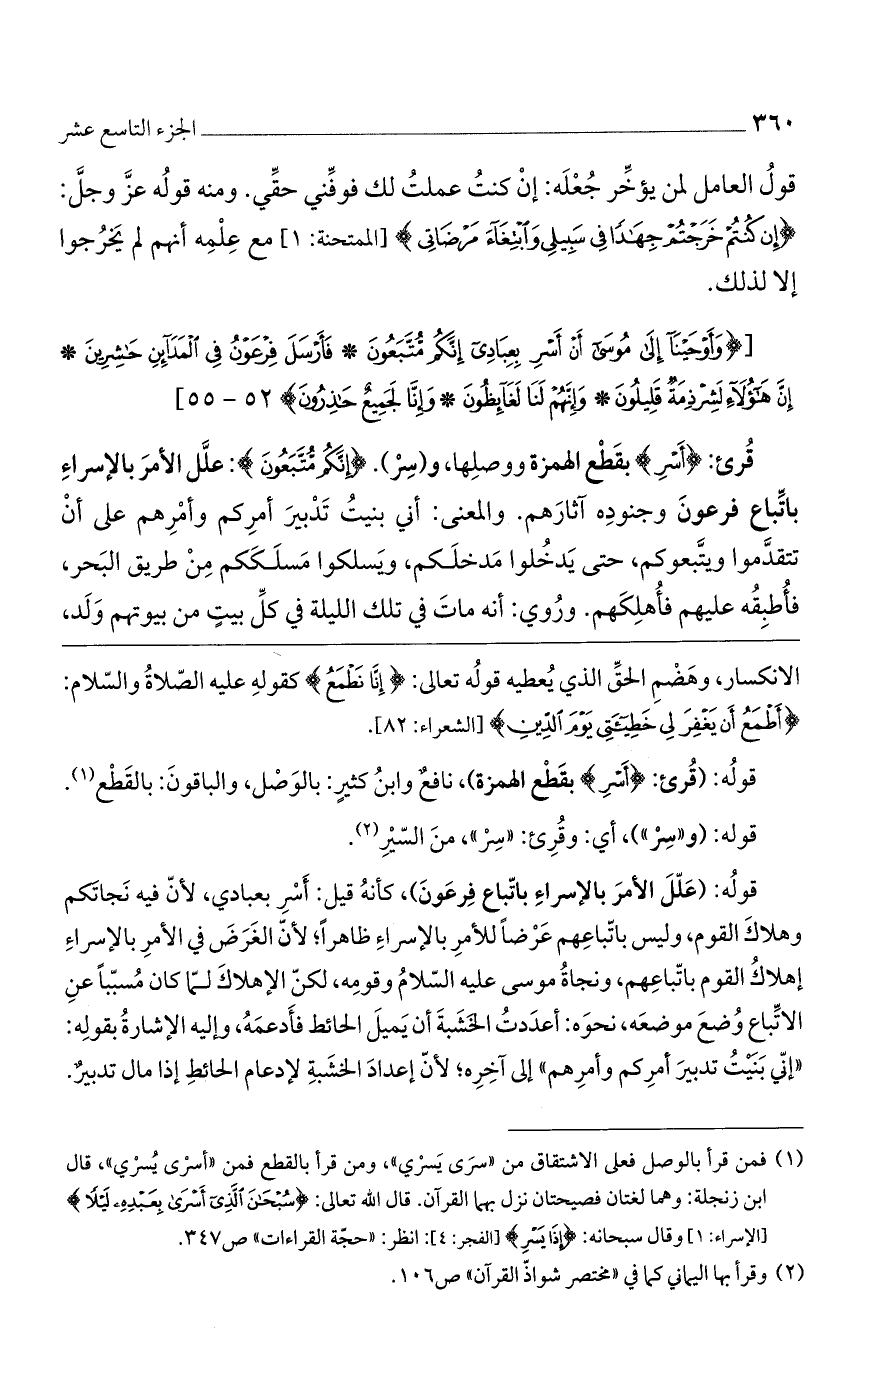 ٣٦٠ الجزء التاسع عشر
قولُ العامل لمن يؤخِّر جُعْلَه: إنْ كنتُ عملتُ لك فوفِّني حقِّي. ومنه قولُه عزَّ وجلَّ:
﴿إِن كُنتُمْ خَرَجْتُمْ جِهَٰدًا فِى سَبِيلِى وَٱبْتِغَآءَ مَرْضَاتِى﴾ [الممتحنة: ١] مع عِلْمِه أنهم لم يَخرُجوا
إلا لذلك.
[﴿وَأَوْحَيْنَآ إِلَىٰ مُوسَىٰٓ أَنْ أَسْرِ بِعِبَادِىٓ إِنَّكُم مُّتَّبَعُونَ * فَأَرْسَلَ فِرْعَوْنُ فِى ٱلْمَدَآئِنِ حَٰشِرِينَ *
إِنَّ هَٰٓؤُلَآءِ لَشِرْذِمَةٌ قَلِيلُونَ * وَإِنَّهُمْ لَنَا لَغَآئِظُونَ * وَإِنَّا لَجَمِيعٌ حَٰذِرُونَ﴾ ٥٢ – ٥٥]
قُرئ: ﴿أَسْرِ﴾ بقَطْع الهمزة ووصلِها، و(سِرْ). ﴿إِنَّكُم مُّتَّبَعُونَ﴾: علَّل الأمرَ بالإسراءِ
باتِّباع فرعونَ وجنودِه آثارَهم. والمعنى: أني بنيتُ تَدْبيرَ أمرِكم وأمْرِهم على أنْ
تتقدَّموا ويتَّبعوكم، حتى يَدخُلوا مَدخلَكم، ويَسلكوا مَسلَكَكم مِنْ طريق البَحر،
فأُطبِقُه عليهم فأُهلِكَهم. ورُوي: أنه ماتَ في تلك الليلة في كلِّ بيتٍ من بيوتهم وَلَد،
الانكسار، وهَضْمِ الحقِّ الذي يُعطيه قولُه تعالى: ﴿إِنَّا نَطْمَعُ﴾ كقولهِ عليه الصّلاةُ والسّلام:
﴿أَطْمَعُ أَن يَغْفِرَ لِى خَطِيٓـَٔتِى يَوْمَ ٱلدِّينِ﴾ [الشعراء: ٨٢].
قولُه: (قُرئ: ﴿أَسْرِ﴾ بقَطْع الهمزة)، نافعٌ وابنُ كثيرٍ: بالوَصْل، والباقونَ: بالقَطْع(١).
قوله: (و«سِرْ»)، أي: وقُرِئ: «سِرْ»، منَ السّيْرِ(٢).
قولُه: (عَلّلَ الأمرَ بالإسراءِ باتّباع فِرعَونَ)، كأنهُ قيل: أَسْرِ بعبادي، لأنّ فيه نَجاتَكم
وهلاكَ القوم، وليس باتّباعِهم عَرْضاً للأمرِ بالإسراءِ ظاهراً؛ لأنّ الغَرَضَ في الأمرِ بالإسراءِ
إهلاكُ القوم باتّباعِهم، ونجاةُ موسى عليه السّلامُ وقومِه، لكنّ الإهلاكَ لـمّا كان مُسبّباً عنِ
الاتِّباع وُضعَ موضعَه، نحوَه: أعدَدتُ الخَشبةَ أن يَميلَ الحائط فأَدعمَهُ، وإليه الإشارةُ بقولِه:
«إنّي بَنَيْتُ تدبيرَ أمرِكم وأمرِهم» إلى آخِرِه؛ لأنّ إعدادَ الخشبةِ لإدعام الحائطِ إذا مال تدبيرٌ.
(١) فمن قرأ بالوصل فعلى الاشتقاق من «سرَى يَسرْي»، ومن قرأ بالقطع فمن «أسرْى يُسرْي»، قال
ابن زنجلة: وهما لغتان فصيحتان نزل بهما القرآن. قال الله تعالى: ﴿سُبْحَٰنَ ٱلَّذِىٓ أَسْرَىٰ بِعَبْدِهِۦ لَيْلًا﴾
[الإسراء: ١] وقال سبحانه: ﴿إِذَا يَسْرِ﴾ [الفجر: ٤]: انظر: «حجّة القراءات» ص٣٤٧.
(٢) وقرأ بها اليماني كما في «مختصر شواذّ القرآن» ص١٠٦.